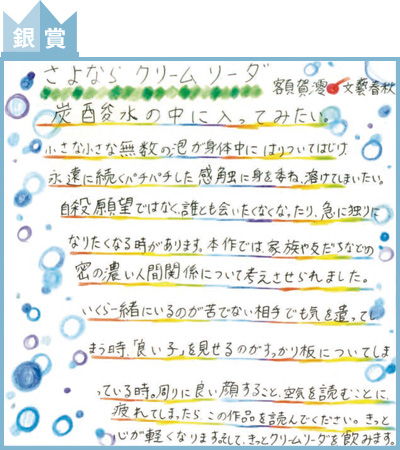 銀賞
さよなら クリームソーダ
額賀澪 文藝春秋
炭酸水の中に入ってみたい。
小さな小さな無数の泡が身体中にはりついてはじけ、
永遠に続くパチパチした感触に身を委ね、溶けてしまいたい。
自殺願望ではなく、誰とも会いたくなくなったり、急に独りに
なりたくなる時があります。本作では、家族や友だちなどの
密の濃い人間関係について考えさせられました。
いくら一緒にいるのが苦でない相手でも気を遣ってし
まう時、「良い子」を見せるのがすっかり板についてしま
っている時。周りに良い顔すること、空気を読むことに、
疲れてしまったら この作品を読んでください。きっと
心が軽くなります。そして、きっとクリームソーダを飲みます。